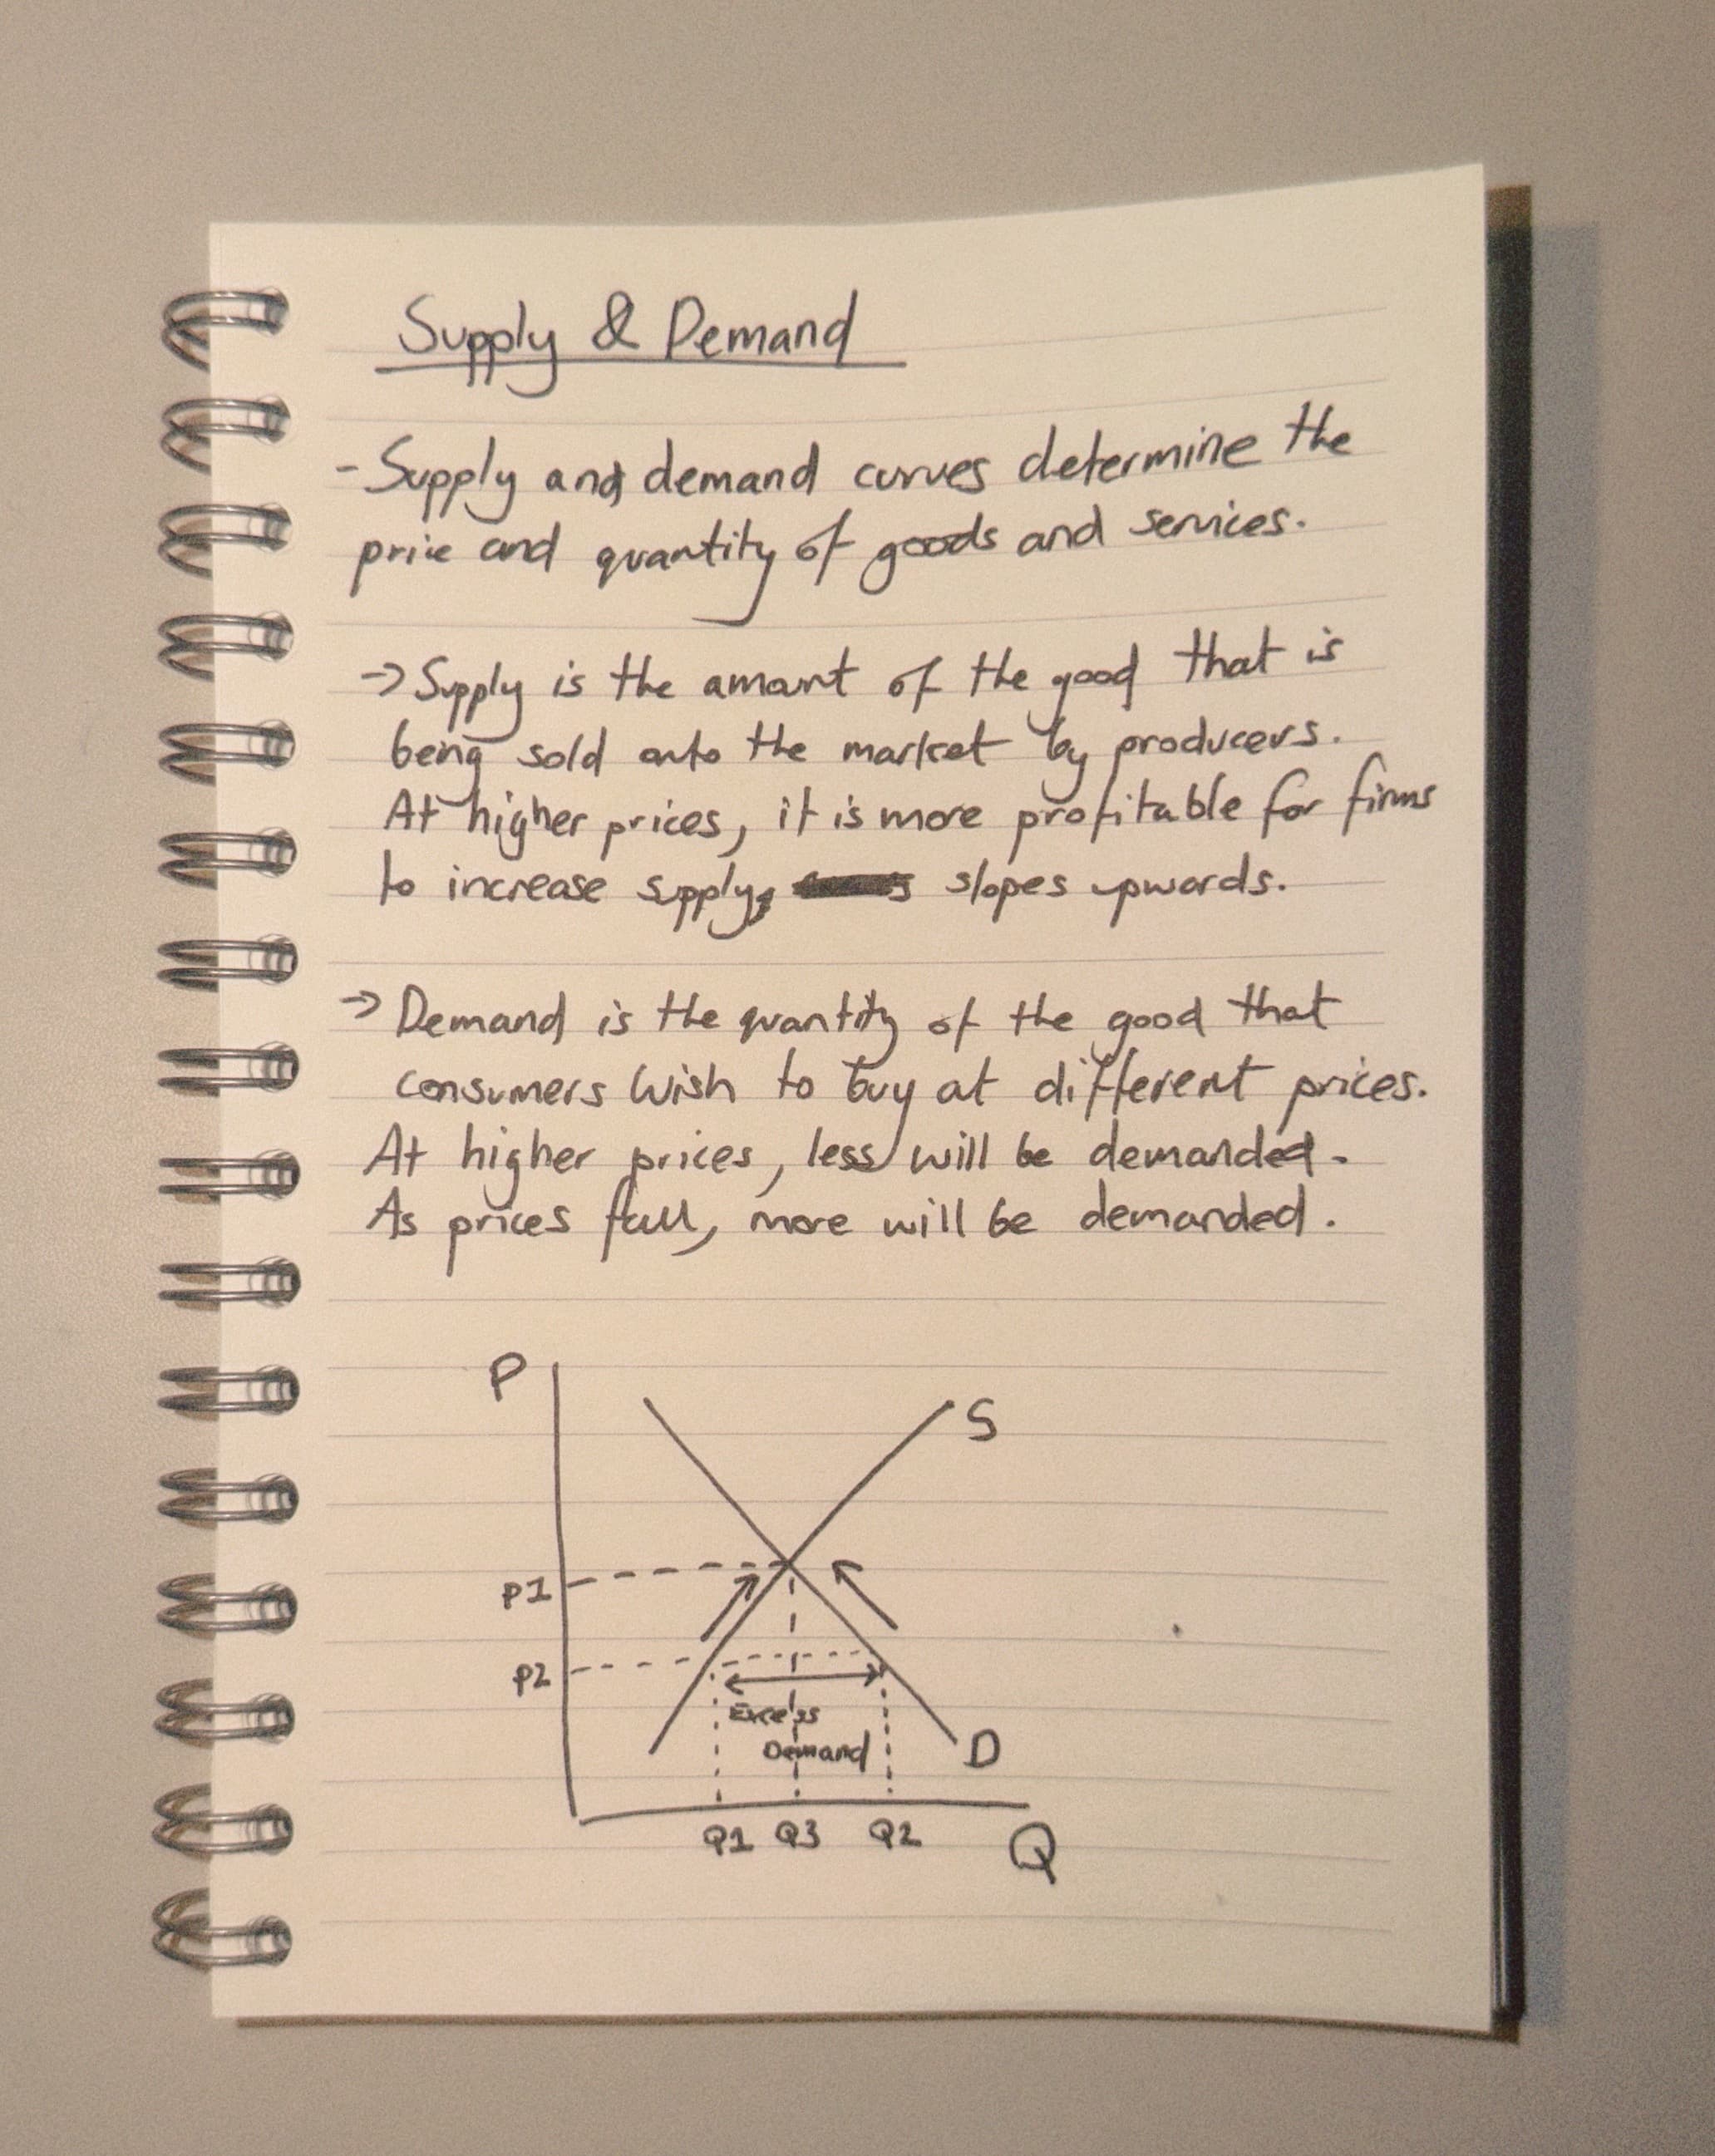 Supply & Demand
- Supply and demand curves determine the
price and quantity of goods and services.
→ Supply is the amount of the good that is
being sold onto the market by producers.
At higher prices, it is more profitable for firms
to increase supply, slopes upwards.
→ Demand is the quantity of the good that
consumers wish to buy at different prices.
At higher prices, less will be demanded.
As prices fall, more will be demanded.
P
S
P1
P2
Excess
Demand
D
Q1 Q3 Q2
Q